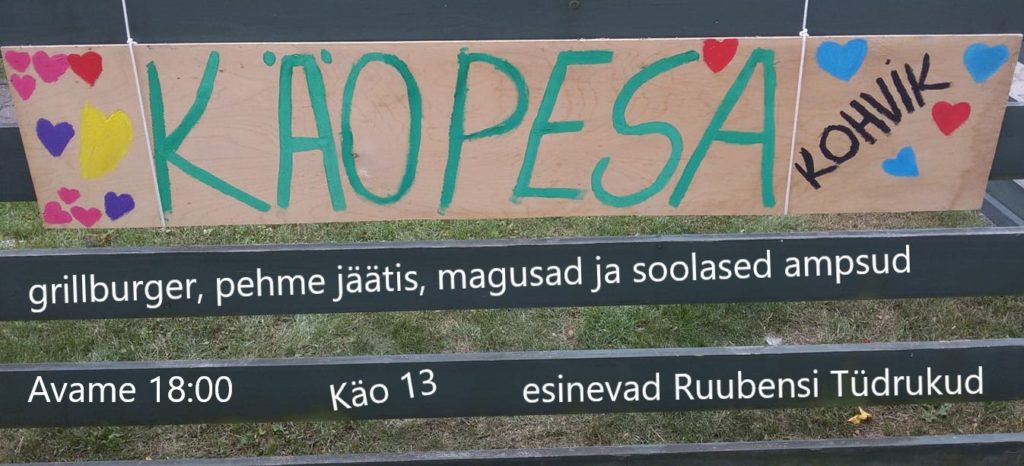 KÄOPESA KOHVIK
grillburger, pehme jäätis, magusad ja soolased ampsud
Avame 18:00 Käo 13 esinevad Ruubensi Tüdrukud